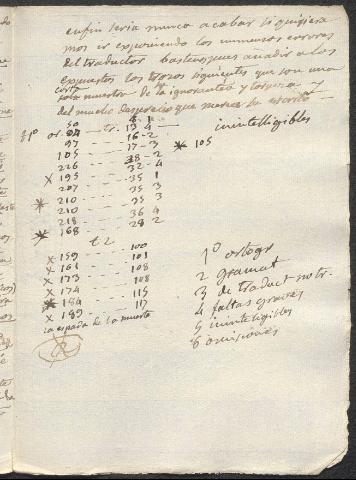 enfin seria nunca acabar si quisiera
mos ir exponiendo los inmensos errores
del traductor bastenos pues añadir a los
expuestos los trozos siguientes que son una
corta muestra de la ignorancia y torpeza
del mucho desprecio que merece su escrito
inintelligibles
97 16-2
105 17-3 * 105
226 32-4
x 195 35 1
207 35 3
* 210 35 3
218 36 4
* 168 28 2
t 2
x 159 100
x 161 101
x 173 108
x 174 115
* 184
x 189 117
la espada de la muerte
1º ortogr
2 gramat
3 de traduct notr.
4 faltas graves
5 inintelígibles
6 omisiones